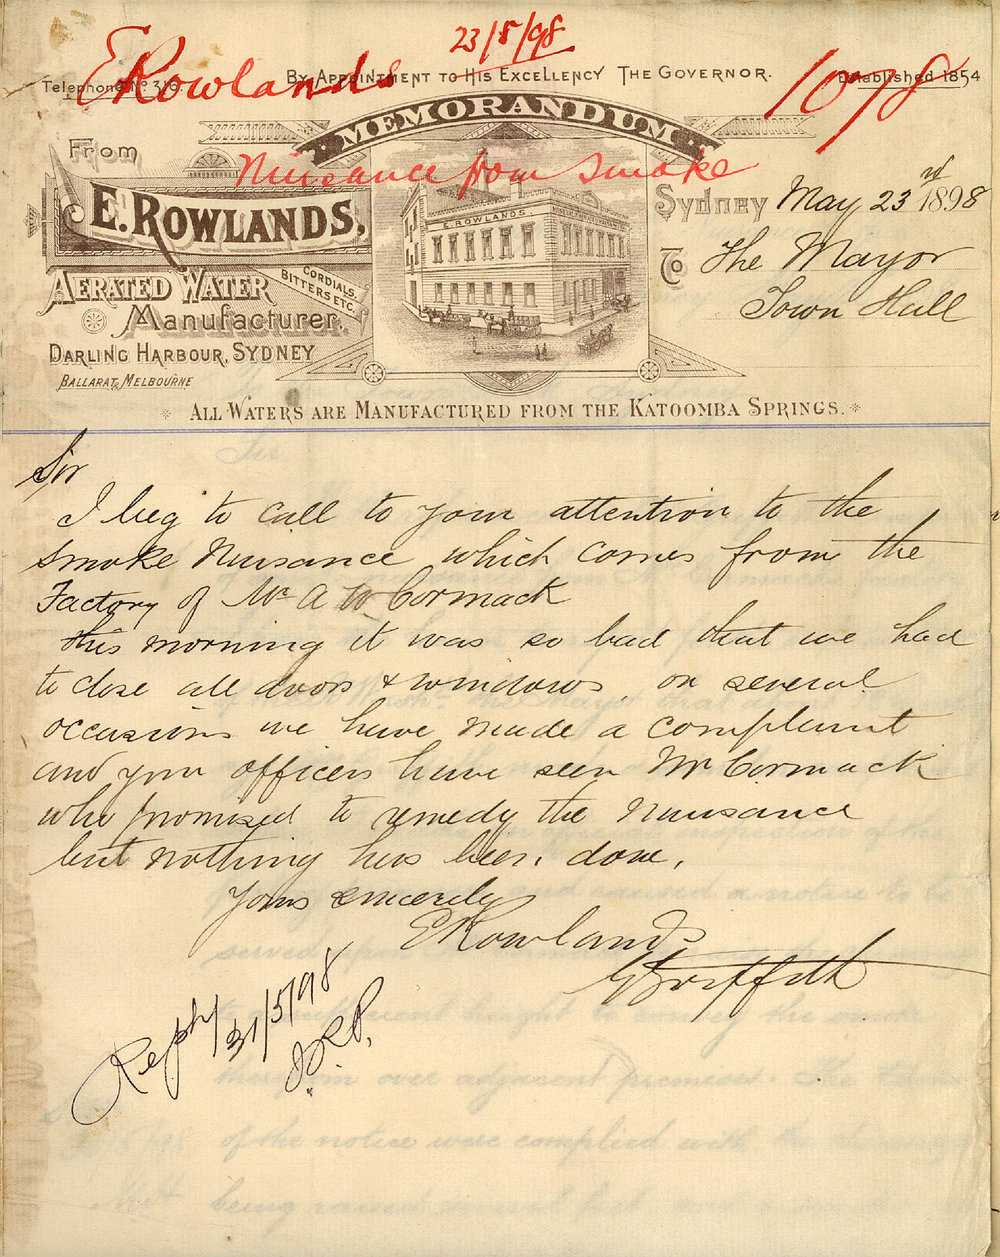 23/5/98
E Rowlands
1078
Telephone No 316.
By Appointment to His Excellency The Governor.
Established 1854
MEMORANDUM
Nuisance from Smoke
From
E. Rowlands,
Aerated Water
Cordials,
Bitters Etc.
Manufacturer.
Darling Harbour, Sydney
Ballarat & Melbourne
E. ROWLANDS.
Sydney May 23rd 1898
To The Mayor
Town Hall
* All Waters are Manufactured from the Katoomba Springs. *
Sir
I beg to call to your attention to the
Smoke Nuisance which comes from the
Factory of Mr A McCormack
this morning it was so bad that we had
to close all doors & windows, on several
occasions we have made a complaint
and your officers have seen McCormack
who promised to remedy the nuisance
but nothing has been done,
Yours sincerely
E Rowlands
Griffith
Reply 31/5/98